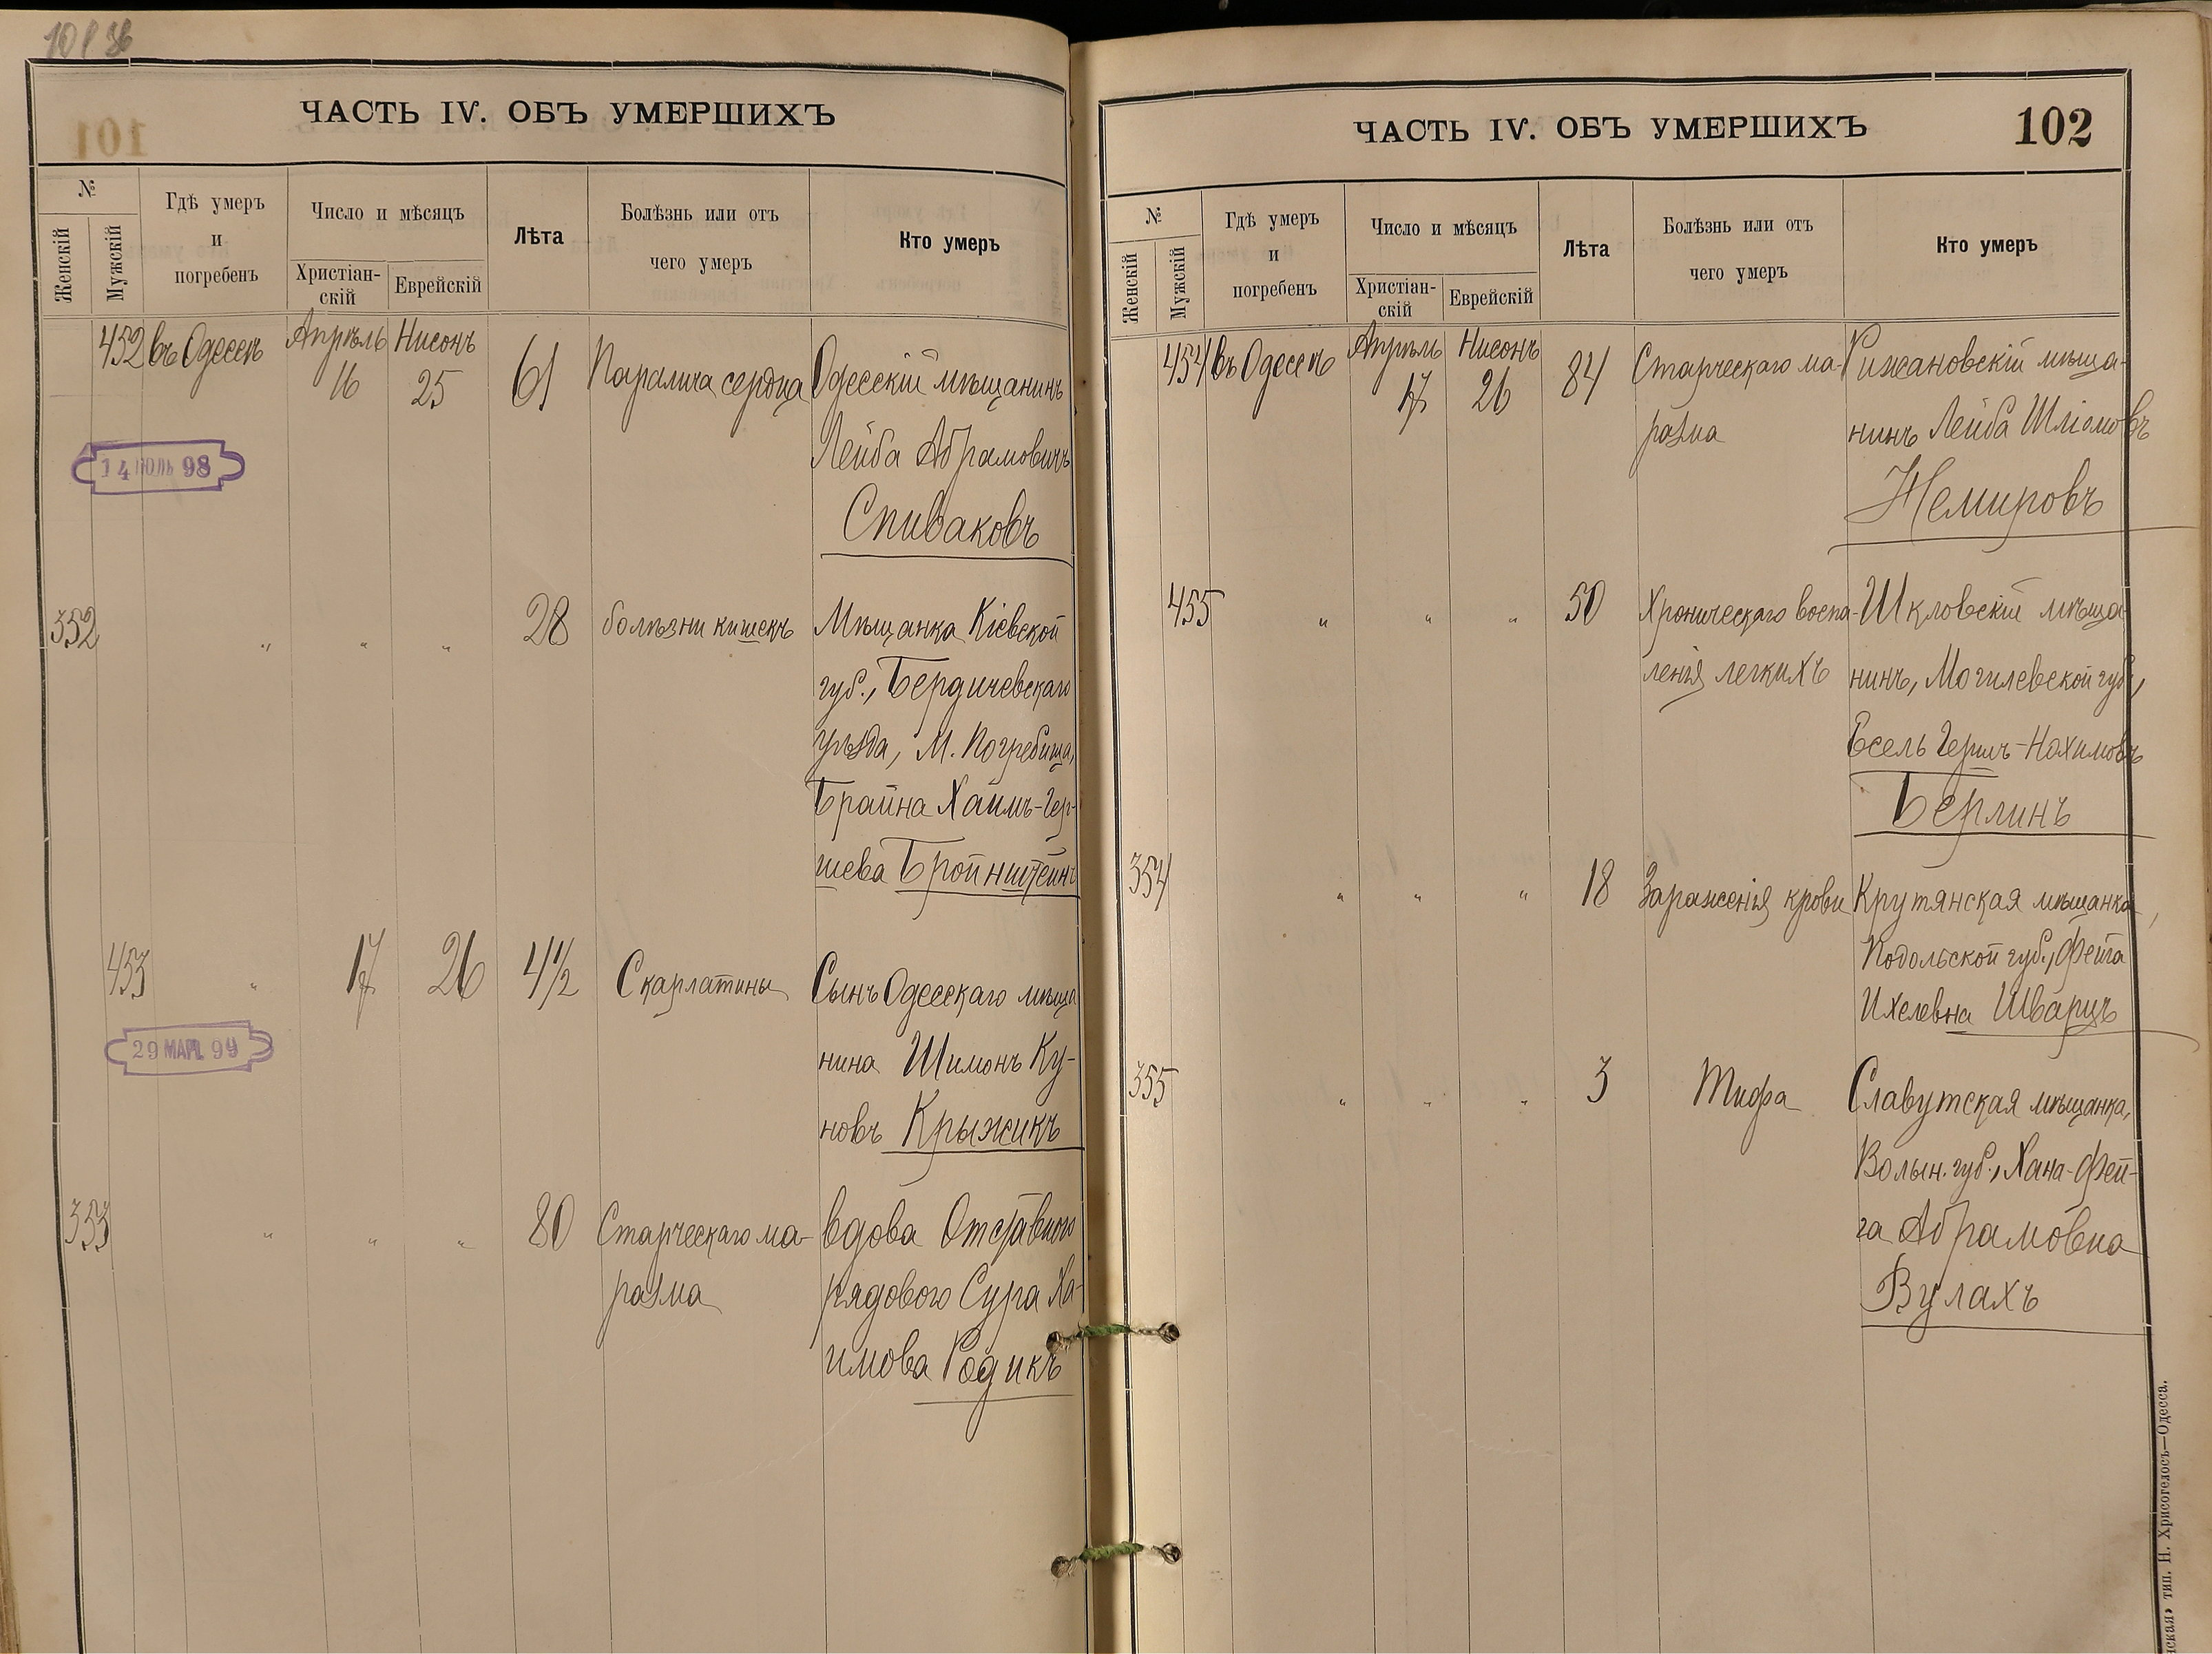 101 об
ЧАСТЬ IV. ОБЪ УМЕРШИХЪ
№
Женскій
Мужскій
Гдѣ умеръ
и
погребенъ
Число и мѣсяцъ
Христіан-
скій
Еврейскій
Лѣта
Болѣзнь или отъ
чего умеръ
Кто умеръ
452 въ Одессѣ Апрѣль 16 Нисонъ 25 61 Паралича сердца Одесскій мѣщанинъ
Лейба Абрамовичъ
Спиваковъ
14 ІЮЛЬ 98
352 " " " 28 болѣзни кишекъ Мѣщанка Кіевской
губ., Бердичевскаго
уѣзда, М. Погребища,
Брайна Хаимъ-Гер-
шева Бройнштейнъ
453 " 17 26 4½ Скарлатины Сынъ Одесскаго мѣща
нина Шимонъ Ку-
новъ Крыжикъ
29 МАР. 99
353 " " " 80 Старческаго ма- вдова Отставного
разма рядового Сура Ха-
имова Родикъ
ЧАСТЬ IV. ОБЪ УМЕРШИХЪ
102
№
Женскій
Мужскій
Гдѣ умеръ
и
погребенъ
Число и мѣсяцъ
Христіан-
скій
Еврейскій
Лѣта
Болѣзнь или отъ
чего умеръ
Кто умеръ
454 въ Одессѣ Апрѣль 17 Нисонъ 26 84 Старческаго ма- Рижановскій мѣща-
разма нинъ Лейба Шліомовъ
Немировъ
455 " " " 50 Хроническаго воспа- Шкловскій мѣща-
ленія легкихъ нинъ, Могилевской губ.,
Есель Гершъ-Нахимовъ
Берлинъ
354 " " " 18 Зараженія крови Крутянская мѣщанка,
Подольской губ., Фейга
Ихелевна Шварцъ
355 " " " 3 Тифа Славутская мѣщанка,
Волын. губ., Хана-Фей-
га Абрамовна
Вулахъ
тип. Н. Хрисогелосъ—Одесса.